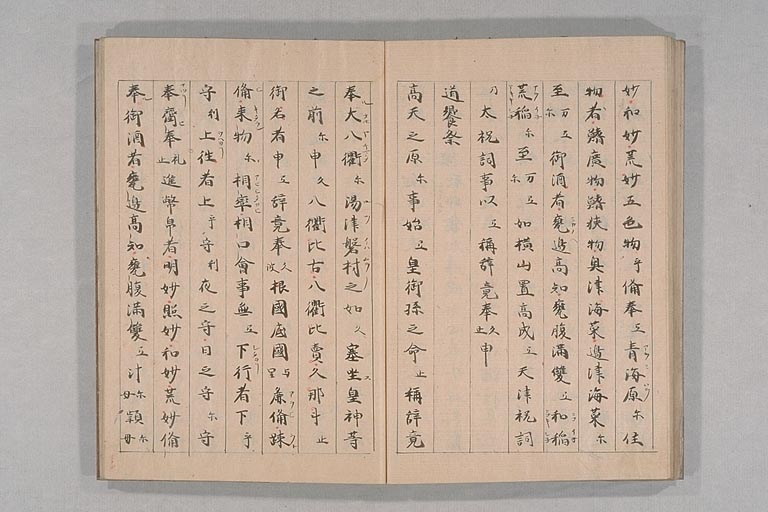 妙和妙荒妙五色物乎備奉弖青海原尓住
物者鰭廣物鰭狭物奥津海菜邊津海菜尓
至万弖尓御酒者甕邊高知甕腹満雙弖和稲
荒稲尓至万弖尓如横山置高成弖天津祝詞
乃太祝詞事以弖稱辞竟奉久止申
道饗祭
高天之原尓事始弖皇御孫之命止稱辞竟
奉大八衢尓湯津磐村之如久塞坐皇神等
之前尓申久八衢比古八衢比賣久那斗止
御名者申弖辞竟奉久波根國底國与里麁備疎
備来物尓相率相口會事無弖下行者下乎
守利上往者上乎守利夜之守日之守尓守
奉齋奉礼止進幣帛者明妙照妙和妙荒妙備
奉御酒者甕邊高知甕腹満雙弖汁尓母穎尓母